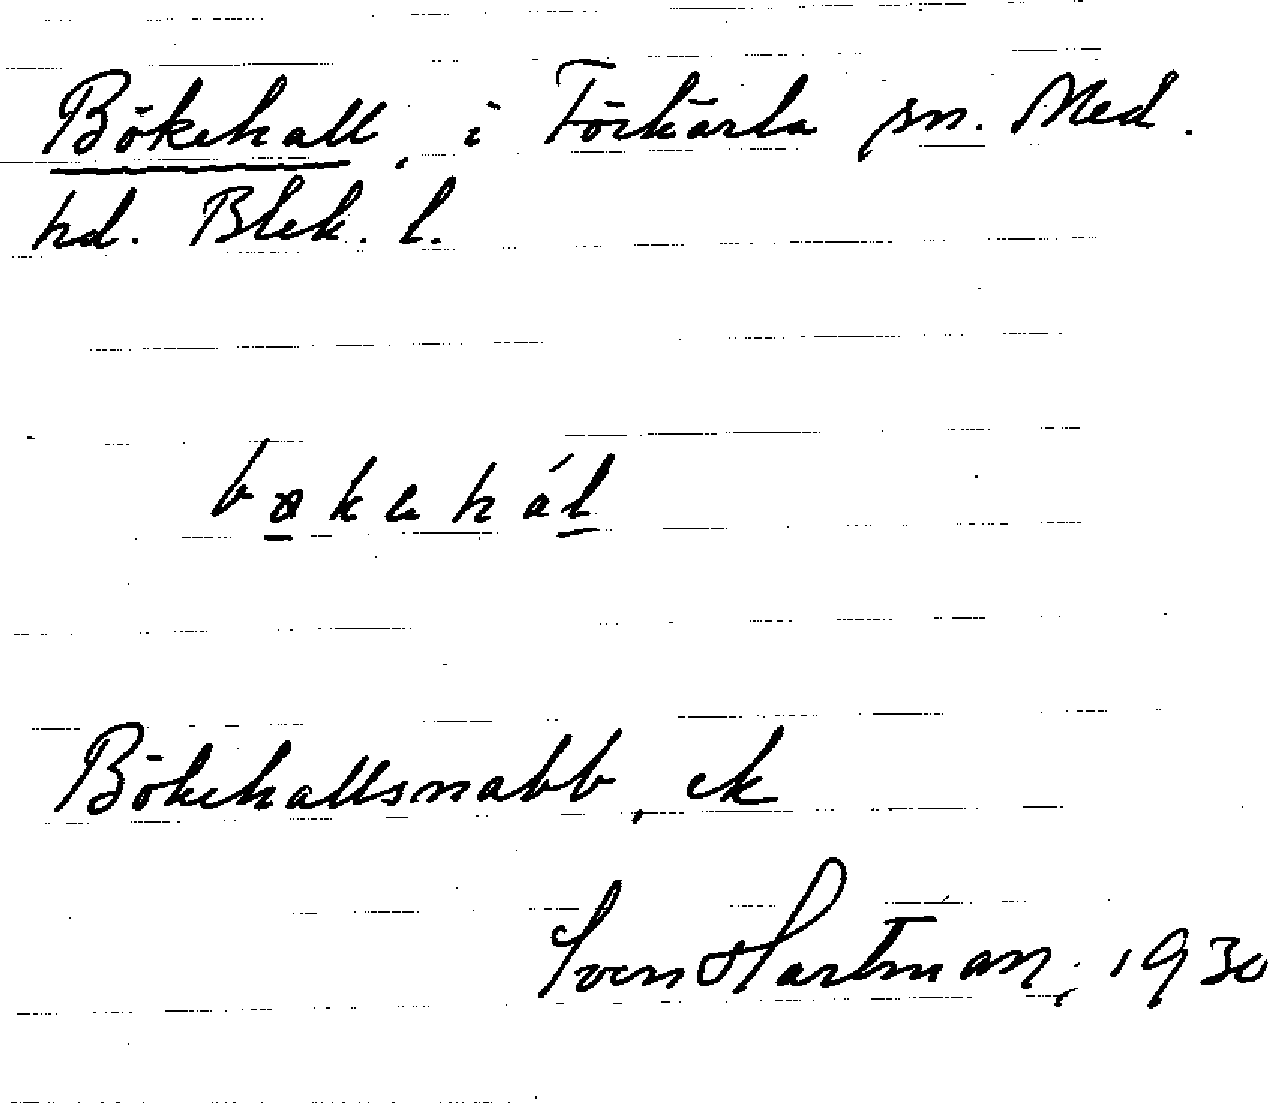 Bökehall, i Förkärla sn. Med.
hd. Blek. l.
Bökehallsnabb, ek
Sven Hartman, 1930